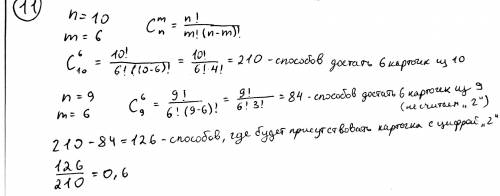 11
n = 10
m = 6
C_n^m = n! / m!(n-m)!
C_10^6 = 10! / 6!(10-6)! = 10! / 6! 4! = 210 - способов достать 6 карточек из 10
n = 9
m = 6
C_9^6 = 9! / 6!(9-6)! = 9! / 6! 3! = 84 - способов достать 6 карточек из 9
(не считаем „2")
210 - 84 = 126 - способов, где будет присутствовать карточка с цифрой „2"
126 / 210 = 0,6